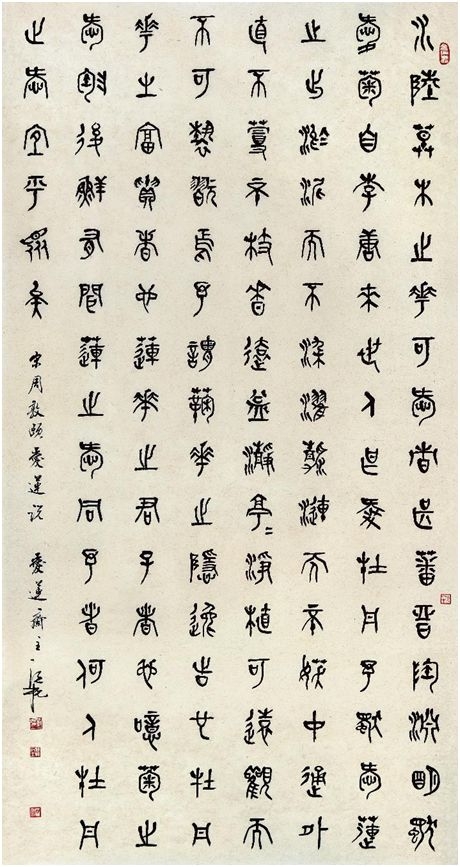 水陸草木之花可愛者甚蕃晉陶淵明獨
愛菊自李唐來世人甚愛牡丹予獨愛蓮
之出淤泥而不染濯清漣而不妖中通外
直不蔓不枝香遠益清亭〻淨植可遠觀而
不可褻翫焉予謂菊花之隱逸者也牡丹
花之富貴者也蓮花之君子者也噫菊之
愛陶後鮮有聞蓮之愛同予者何人牡丹
之愛宜乎眾矣 宋周敦頤愛蓮說 愛蓮齋主